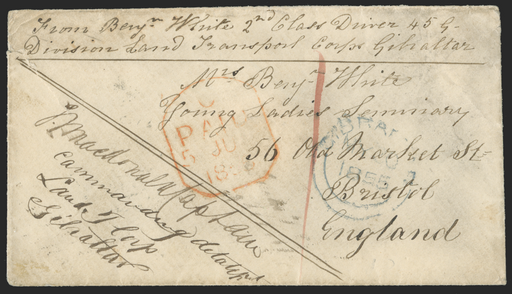 From Benjn. White 2nd Class Driver 45 G-
Division Land Transport Corps Gibraltar
Mrs Benjn. White
Young Ladies Seminary
56 Old Market St-
Bristol
England
Macdonald Captain
Commanding detacht
Land T Corp
Gibraltar
PAID
JU
185
GIBRALTAR
1855